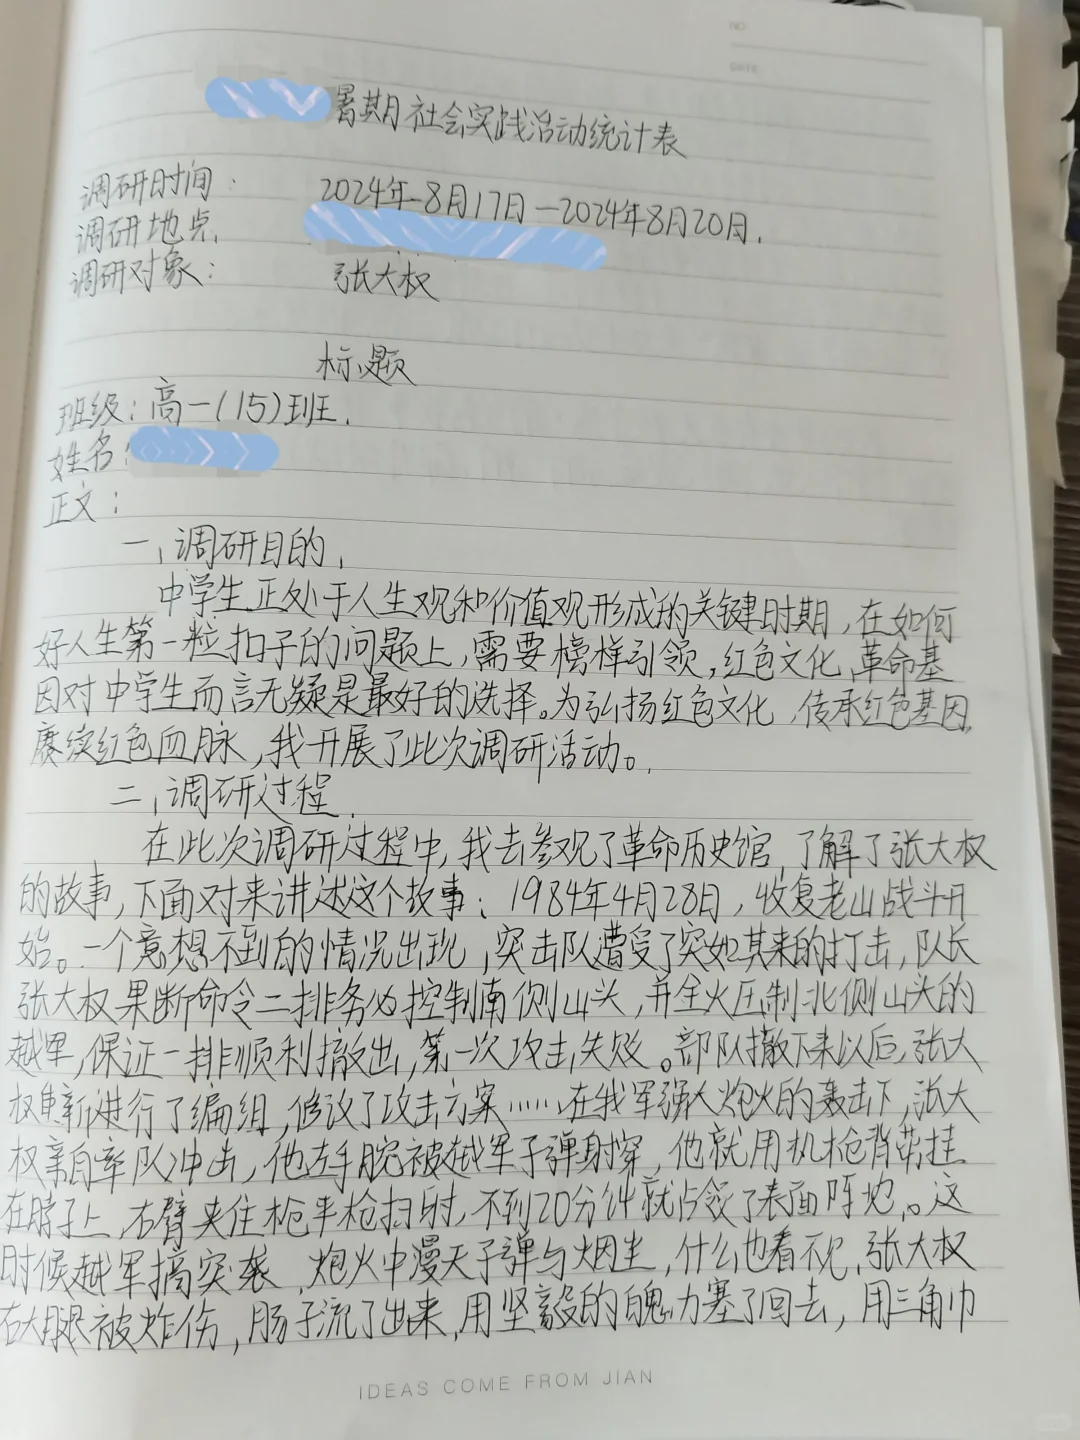 暑期社会实践活动统计表
调研时间: 2024年-8月17日—2024年8月20日.
调研地点.
调研对象: 张大权
标题
班级:高一(15)班.
姓名:
正文:
一、调研目的,
中学生正处于人生观和价值观形成的关键时期,在如何
好人生第一粒扣子的问题上,需要榜样引领,红色文化,革命基
因对中学生而言无疑是最好的选择。为弘扬红色文化,传承红色基因,
赓续红色血脉,我开展了此次调研活动。
二、调研过程.
在此次调研过程中,我去参观了革命历史馆,了解了张大权
的故事,下面对来讲述这个故事:1984年4月28日,收复老山战斗开
始。一个意想不到的情况出现,突击队遭受了突如其来的打击,队长
张大权果断命令二排务必控制南侧山头,并全火压制北侧山头的
越军,保证一排顺利撤出,第一次攻击失败。部队撤下来以后,张大
权重新进行了编组,修改了攻击方案……在我军强大炮火的轰击下,张大
权亲自率队冲击,他左手腕被越军子弹射穿,他就用机枪背带挂
在脖子上,右臂夹住枪平枪扫射,不到20分钟就占领了表面阵地。这
时候越军搞突袭,炮火中漫天子弹与烟尘,什么也看不见,张大权
右大腿被炸伤,肠子流了出来,用坚毅的魄力塞了回去,用三角巾
IDEAS COME FROM JIAN